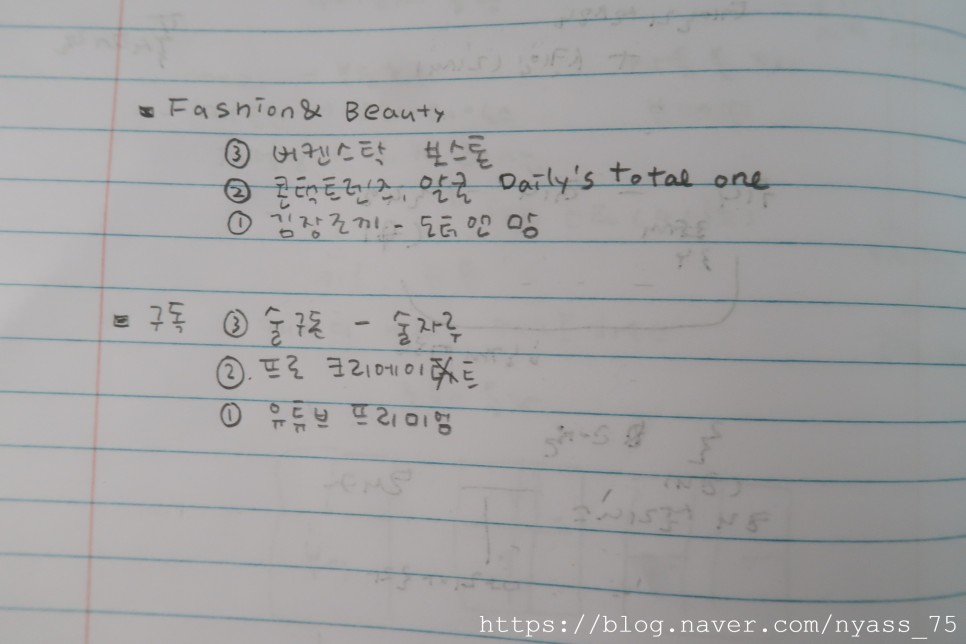 ▪ Fashion & Beauty
③ 버켄스탁 보스톤
② 콘택트렌즈, 알콘 Daily's total one
① 김장조끼 - 도터앤맘
▪ 구독 ③ 술구독 - 술자루
②. 프로 크리에이트
① 유튜브 프리미엄
https://blog.naver.com/nyass_75